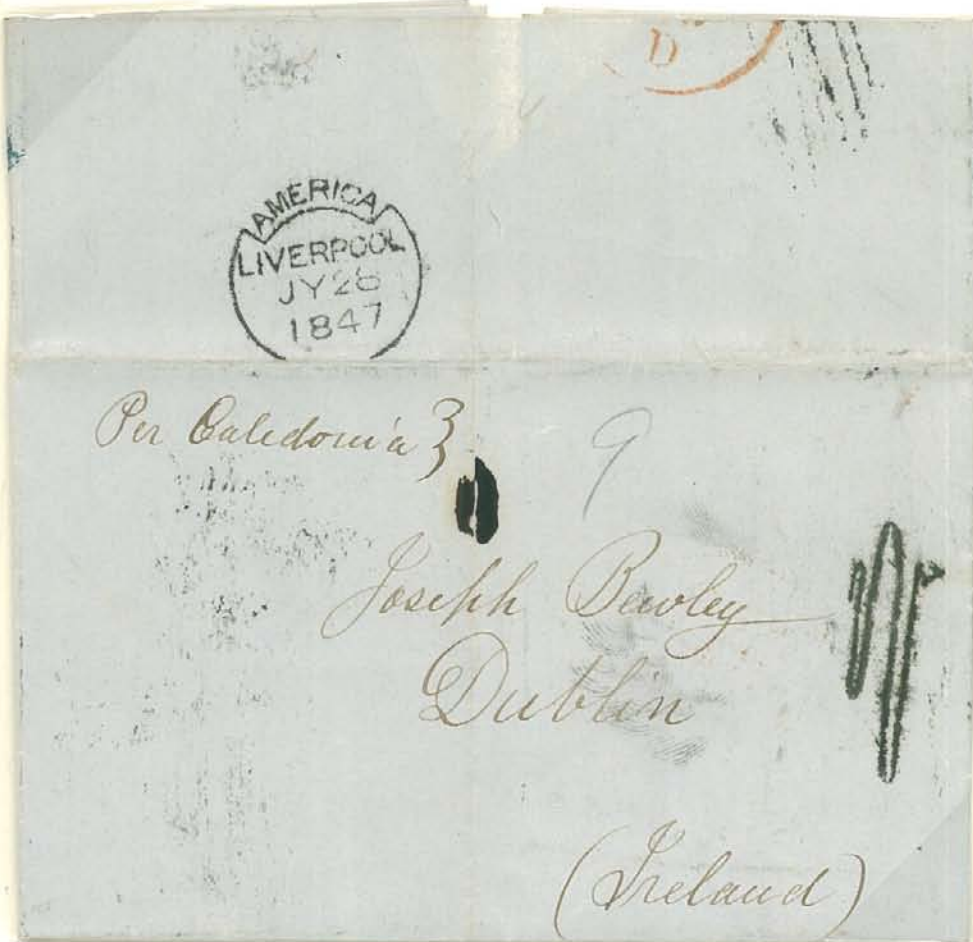 D
AMERICA
LIVERPOOL
JY 28
1847
Per Caledonia
9
Joseph Bewley
Dublin
(Ireland)